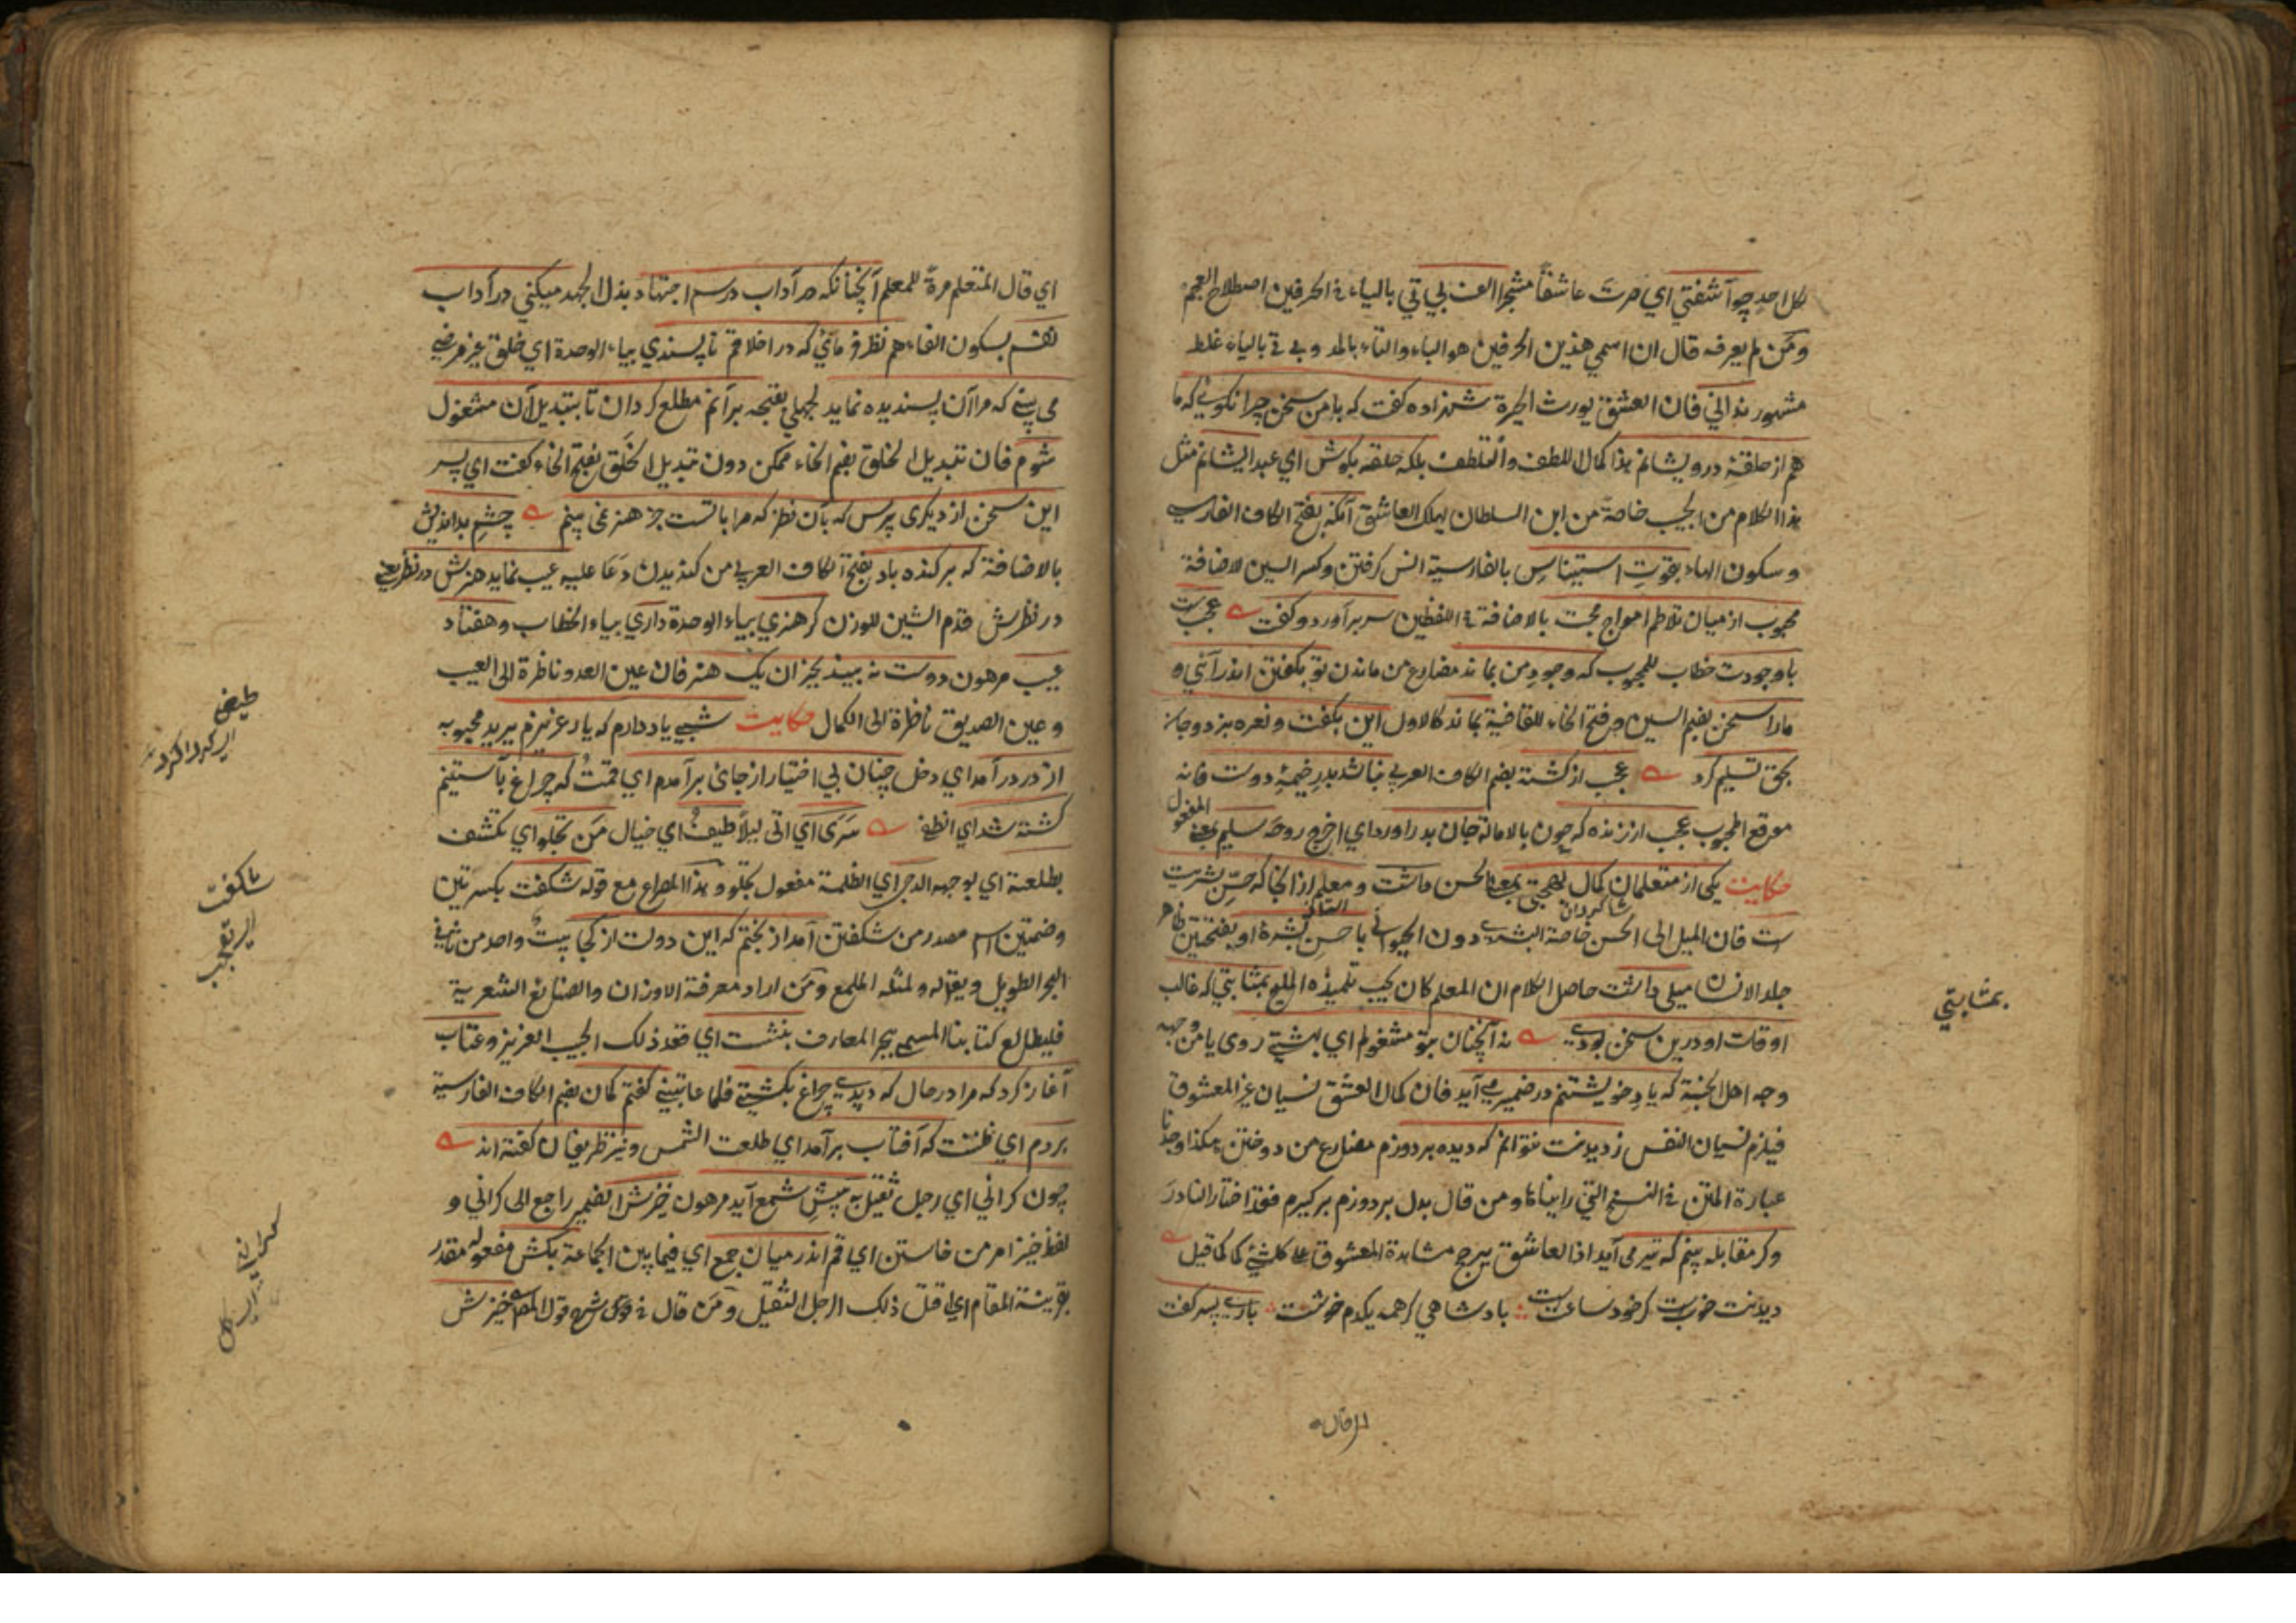 لكل احد چو آشفتي اي صرت عاشقاً متحيرا الف بي تي بالياء في الحرفين اصطلاح العجم
ومن لم يعرفه قال ان اسمي هذين الحرفين هو الباء والتاء بالمد و بي تي بالياء غلط
مشهور نداني فان العشق يورث الحيرة شهزاده كفت كه با من سخن چرا نكويي كه ما
هم از حلقهٔ درويشانم هذا كمال اللطف والتلطف بلكه حلقه بكوش اي عبد ايشانم مثل
هذا الكلام من الحبيب خاصة من ابن السلطان يهلك العاشق آنكه بفتح الكاف الفارسي
وسكون الهاء بقوت استيناس بالفارسية انس كرفتن وكسر السين لاضافة
محبوب از ميان تلاطم امواج محبت بالاضافة في اللفظين سر برآورد وكفت عجبست
با وجودت خطاب للمحبوب كه وجود من بماند مضارع من ماندن تو بكفتن اندر آئي و
مارا سخن بضم السين وفتح الخاء للقافية بماند كالاول اين بكفت و نعره بزد وجان
بحق تسليم كرد عجب از كشته بضم الكاف العربي نباشد بدر خيمهٔ دوست فانه
موقع المحبوب عجب از زنده كه چون بالامالة جان بدر آورد اي اخرج روحه سليم بمعنى المفعول
حكايت يكي از متعلمان كمال بهجتي بمعنى الحسن داشت و معلم از انجا كه حسّ بشريت
شاكردان
ست فان الميل الى الحسن خاصة البشرية دون الحيواني با حسن بشرهٔ او بفتحتين ظاهر
جلد الانسان ميلي داشت حاصل الكلام ان المعلم كان يحب تلميذه المليح بمثابتي كه غالب
اوقات او درين سخن بودي نه آنچنان بتو مشغولم اي بهشتي روي يا من وجهه
وجه اهل الجنة كه ياد خويشتنم در ضمير مي آيد فان كمال العشق نسيان غير المعشوق
فيلزم نسيان النفس ز ديدنت نتوانم كه ديده بر دوزم مضارع من دوختن هكذا وجدنا
عبارة المتن في النسخ التي رايناها ومن قال بدل بر دوزم بر كيرم فقد اختار النادر
وكر مقابله بينم كه تير مي آيد اذ العاشق يرجح مشاهدة المعشوق على كل شيء كما قيل
ديدنت خوبست كر خود ساعتيست بادشاهي كر همه يكدم خوشست باري پسر كفت
بمثابتي
اي قال المتعلم مرة للمعلم آنچنانكه در آداب درسم اجتهاد بذل الجهد ميكني در آداب
نفسم بسكون الفاء هم نظر فرمائي كه در اخلاقم ناپسندي بياء الوحدة اي خلق غير مرضي
مي بيني كه مرا آن پسنديده نمايد لجهلي بقبحه بر آنم مطلع كردان تا بتبديل آن مشغول
شوم فان تبديل الخلق بضم الخاء ممكن دون تبديل الخلق بفتح الخاء كفت اي پسر
اين سخن از ديكري پرس كه بآن نظر كه مرا با تست جز هنر نمي بينم چشم بدانديش
بالاضافة كه بركنده باد بفتح الكاف العربي من كنديدن دعا عليه عيب نمايد هنرش در نظر يعني
در نظرش قدم الشين للوزن كر هنري بياء الوحدة داري بياء الخطاب وهفتاد
عيب مرهون دوست نه بيند بجز ان يك هنر فان عين العدو ناظرة الى العيب
وعين الصديق ناظرة الى الكمال حكايت شبي ياد دارم كه يار عزيزم يريد محبوبه
از در درآمد اي دخل چنان بي اختيار از جاي برآمدم اي قمت كه چراغ بآستينم
كشته شد اي انطفى سرى اي اتى ليلاً طيف اي خيال من تجلو اي تكشف
بطلعته اي بوجهه الدجى اي الظلمة مفعول تجلو و هذا المصراع مع قوله شكفت بكسرتين
وضمتين اسم مصدر من شكفتن آمد از بختم كه اين دولت از كجا بيت واحد من ثاني
البحر الطويل ويقال له ولمثله الملمع ومن اراد معرفة الاوزان والصنائع الشعرية
فليطالع كتابنا المسمى ببحر المعارف بنشست اي قعد ذلك الحبيب العزيز وعتاب
آغاز كرد كه مرا در حال كه ديدي چراغ بكشتي فلما عاتبني كفتم كمان بضم الكاف الفارسية
بردم اي ظننت كه آفتاب برآمد اي طلعت الشمس ونيز ظريفان كفته اند
چون كراني اي رجل ثقيل به پيش شمع آيد مرهون خيزش الضمير راجع الى كراني و
لفظ خيز امر من خاستن اي قم اندر ميان جمع اي فيما بين الجماعة بكش مفعوله مقدر
بقرينة المقام اي اقتل ذلك الرجل الثقيل ومن قال في شرح قوله خيزش
شكفت
اي تعجب